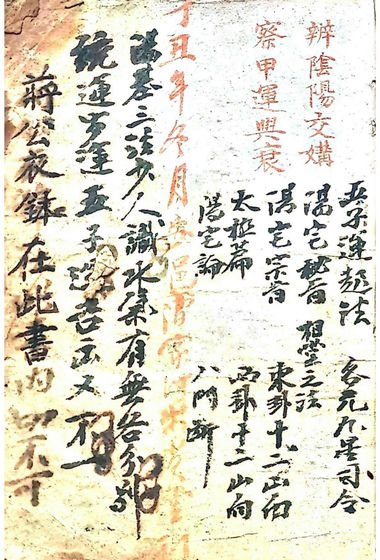 辨陰陽交媾
察甲運興衰
五子運起法 各元九星司令
陽宅秘旨 祖堂之法
陽宅宗旨 東卦十二山向
太極篇 西卦十二山向
陽宅論 八門斷
丁丑年冬月
陽基三法少人識水氣有無各分別
統運 運五子 吉凶又不一
蔣公衣鉢在此書內切不可